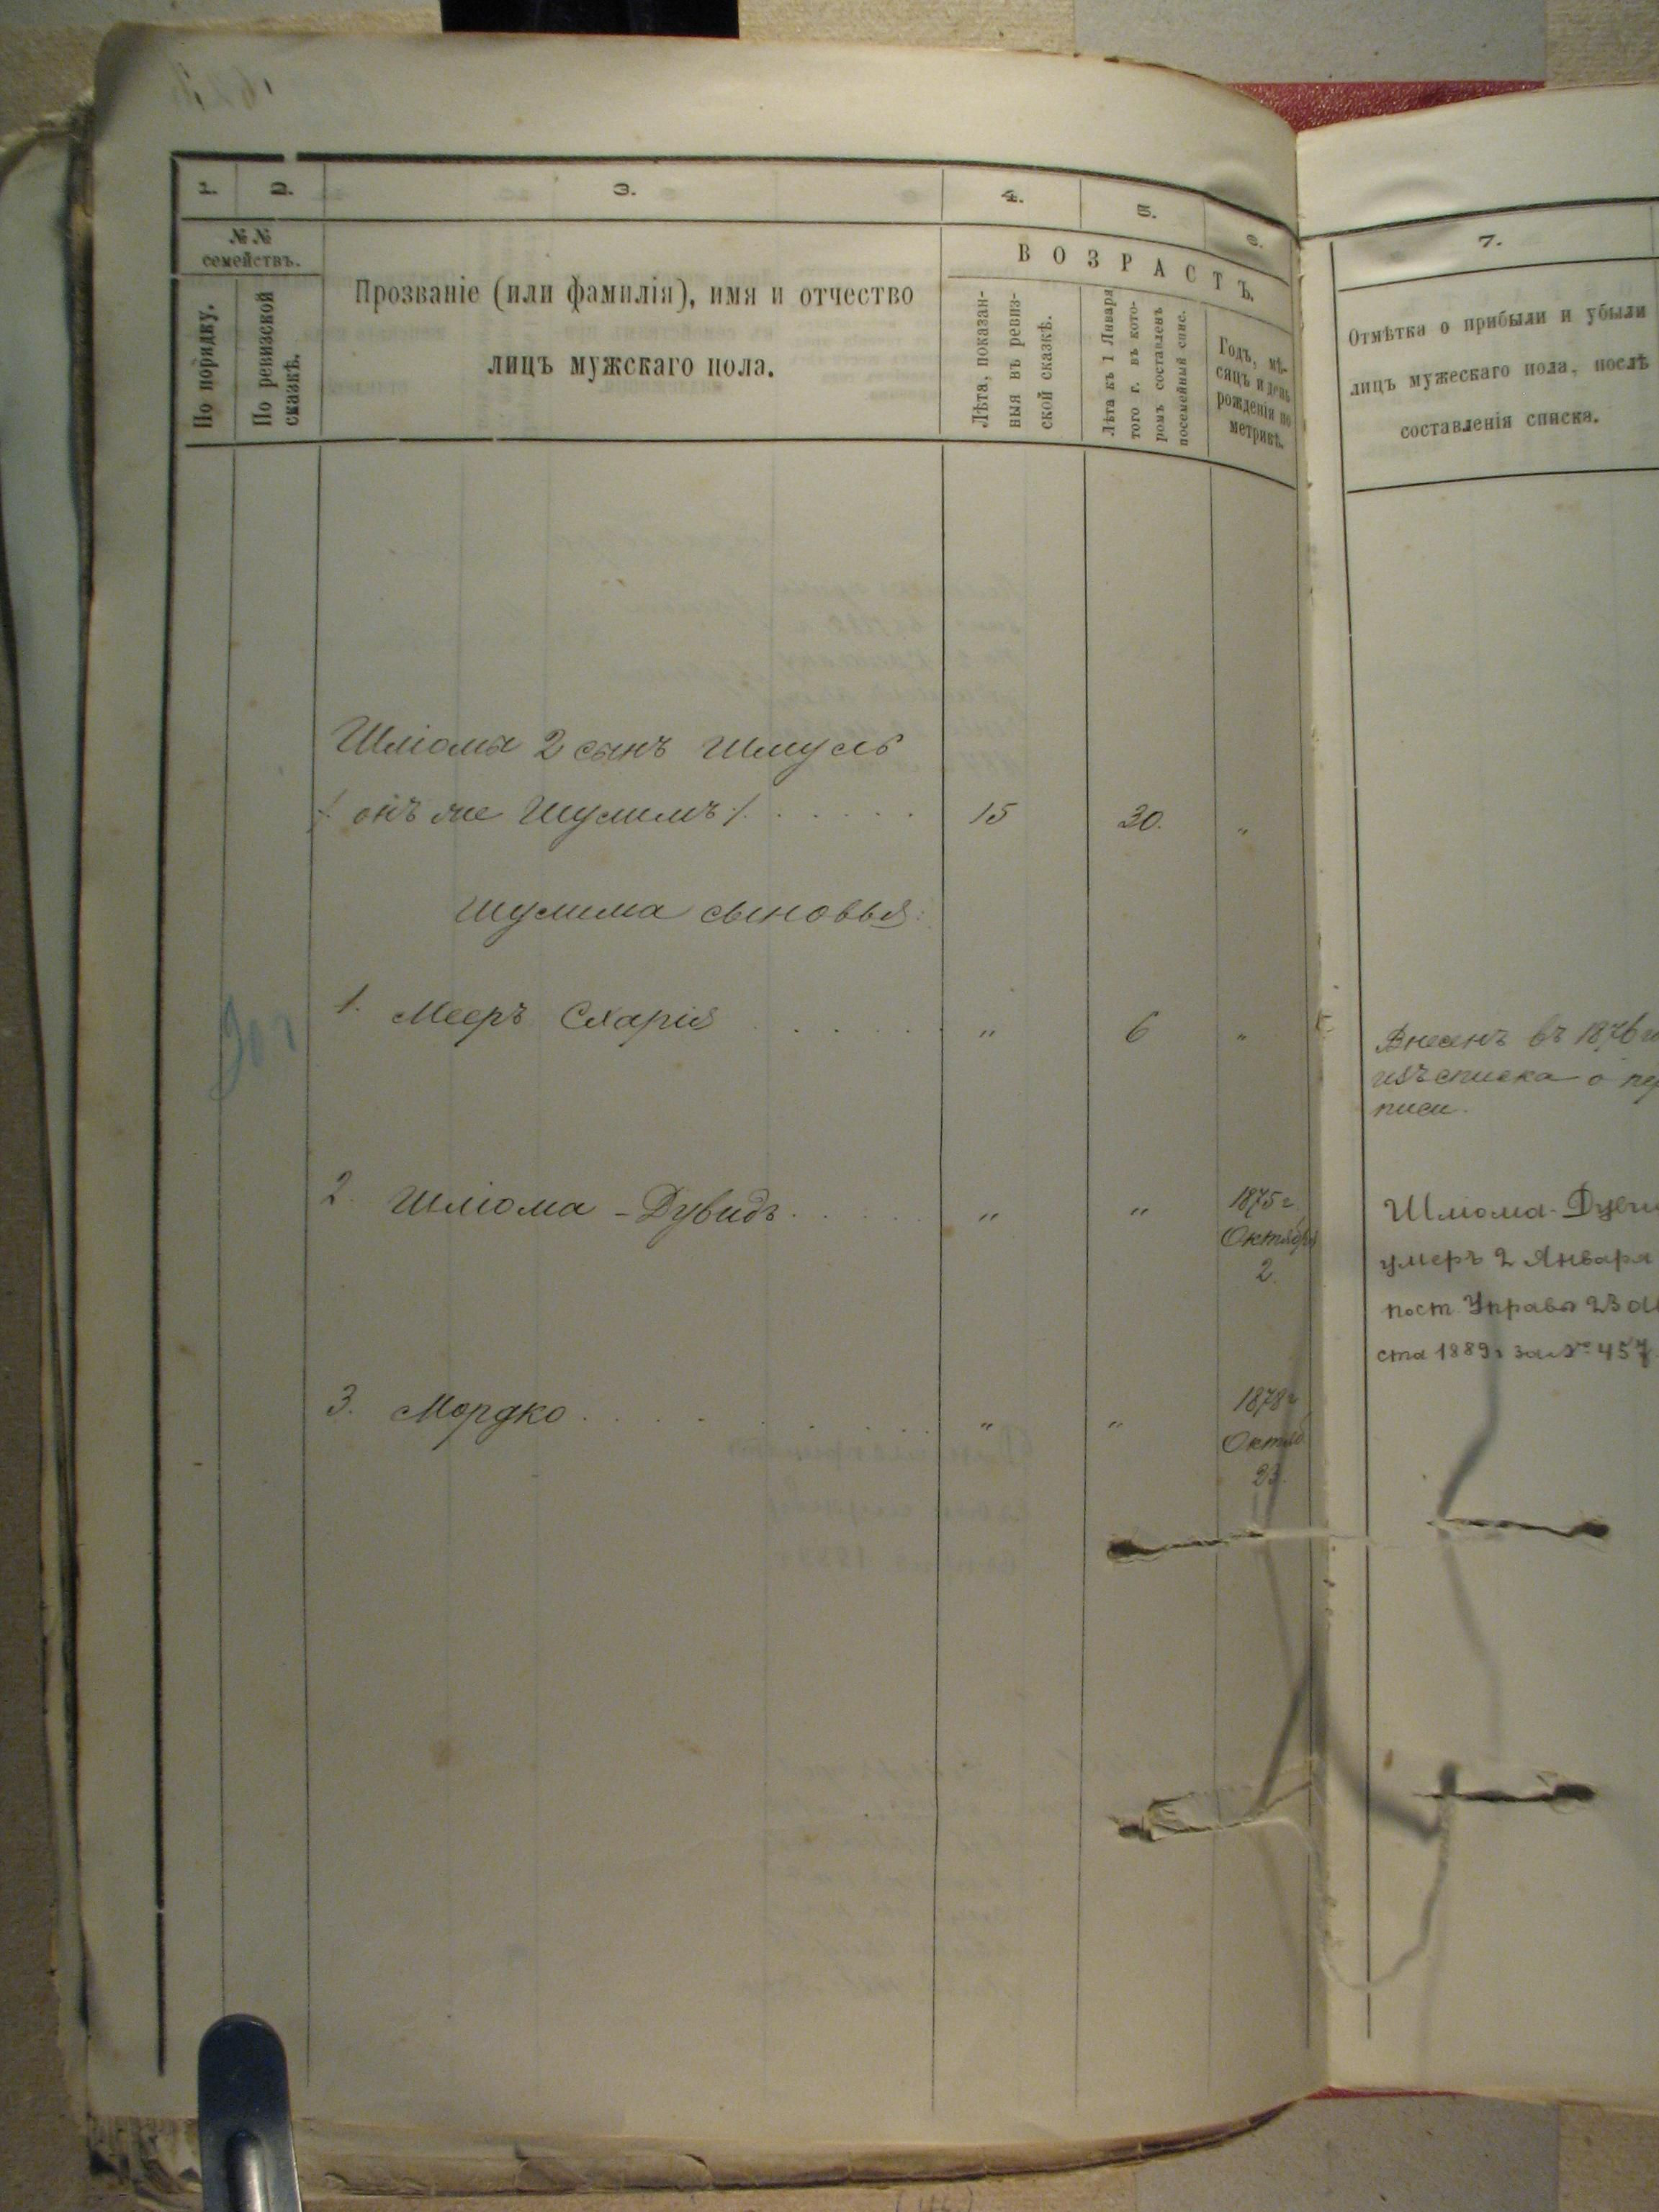 1.
2.
3.
4.
5.
6.
7.
№ №
семействъ.
По порядку.
По ревизской
сказкѣ.
Прозваніе (или фамилія), имя и отчество
лицъ мужскаго пола.
ВОЗРАСТЪ.
Лѣта, показан-
ныя въ ревиз-
ской сказкѣ.
Лѣта къ 1 Января
того г. въ кото-
ромъ составленъ
посемейный спис.
Годъ, мѣ-
сяцъ и день
рожденія по
метрикѣ.
Отмѣтка о прибыли и убыли
лицъ мужескаго пола, послѣ
составленія списка.
Шліома 2 сынъ Шмуль
/. онъ же Шулимъ ./. . . . . . 15 30. "
Шулима сыновья:
1. Мееръ Схарія . . . . . " 6 "
Внесенъ въ 1876
изъ списка о
писи.
2. Шліома - Дувидъ . . . . . " " 1875 г.
Октября
2.
Шліома-
умеръ 2 Января
пост. Управы 23
ста 1889 г за № 457
3. Мордко . . . . . . . " " 1878 г
Октяб.
23.